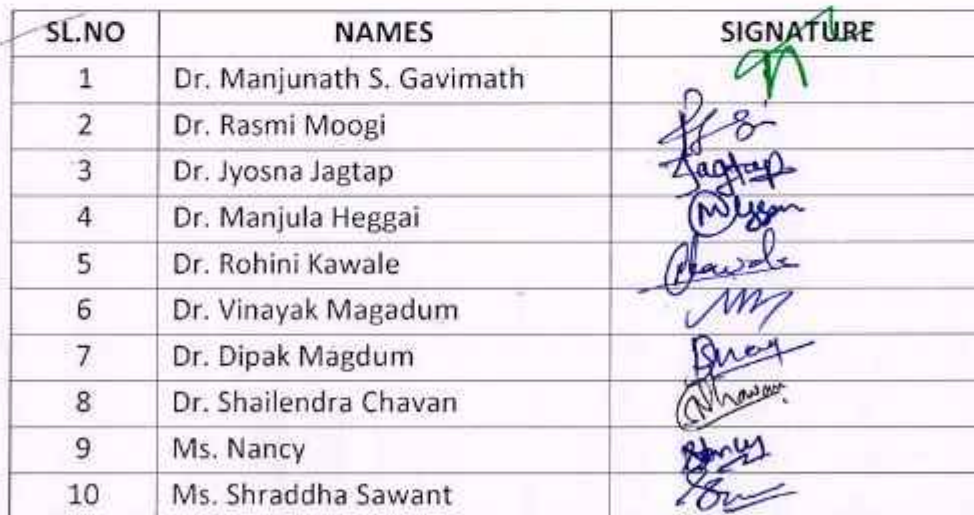 SL.NO NAMES SIGNATURE
1 Dr. Manjunath S. Gavimath
2 Dr. Rasmi Moogi
3 Dr. Jyosna Jagtap Jagtap
4 Dr. Manjula Heggai
5 Dr. Rohini Kawale
6 Dr. Vinayak Magadum
7 Dr. Dipak Magdum
8 Dr. Shailendra Chavan
9 Ms. Nancy
10 Ms. Shraddha Sawant